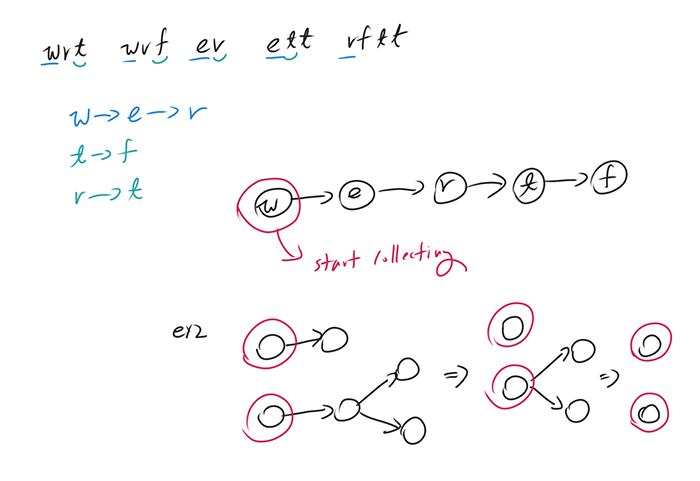 wrt wrf er ett rftt
w→e→r
t→f
r→t
w → e → r → t → f
start collecting
ex2
⇒ ⇒